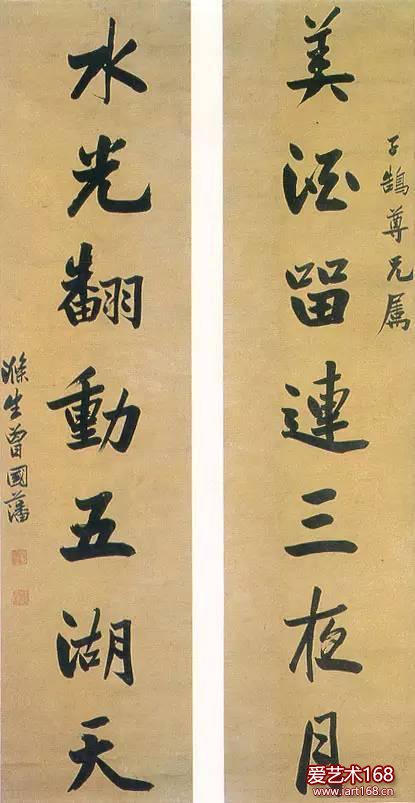 子鶴尊兄属
美酒留連三夜月
水光翻動五湖天
滌生曾國藩
爱艺术168
www.iart168.cn